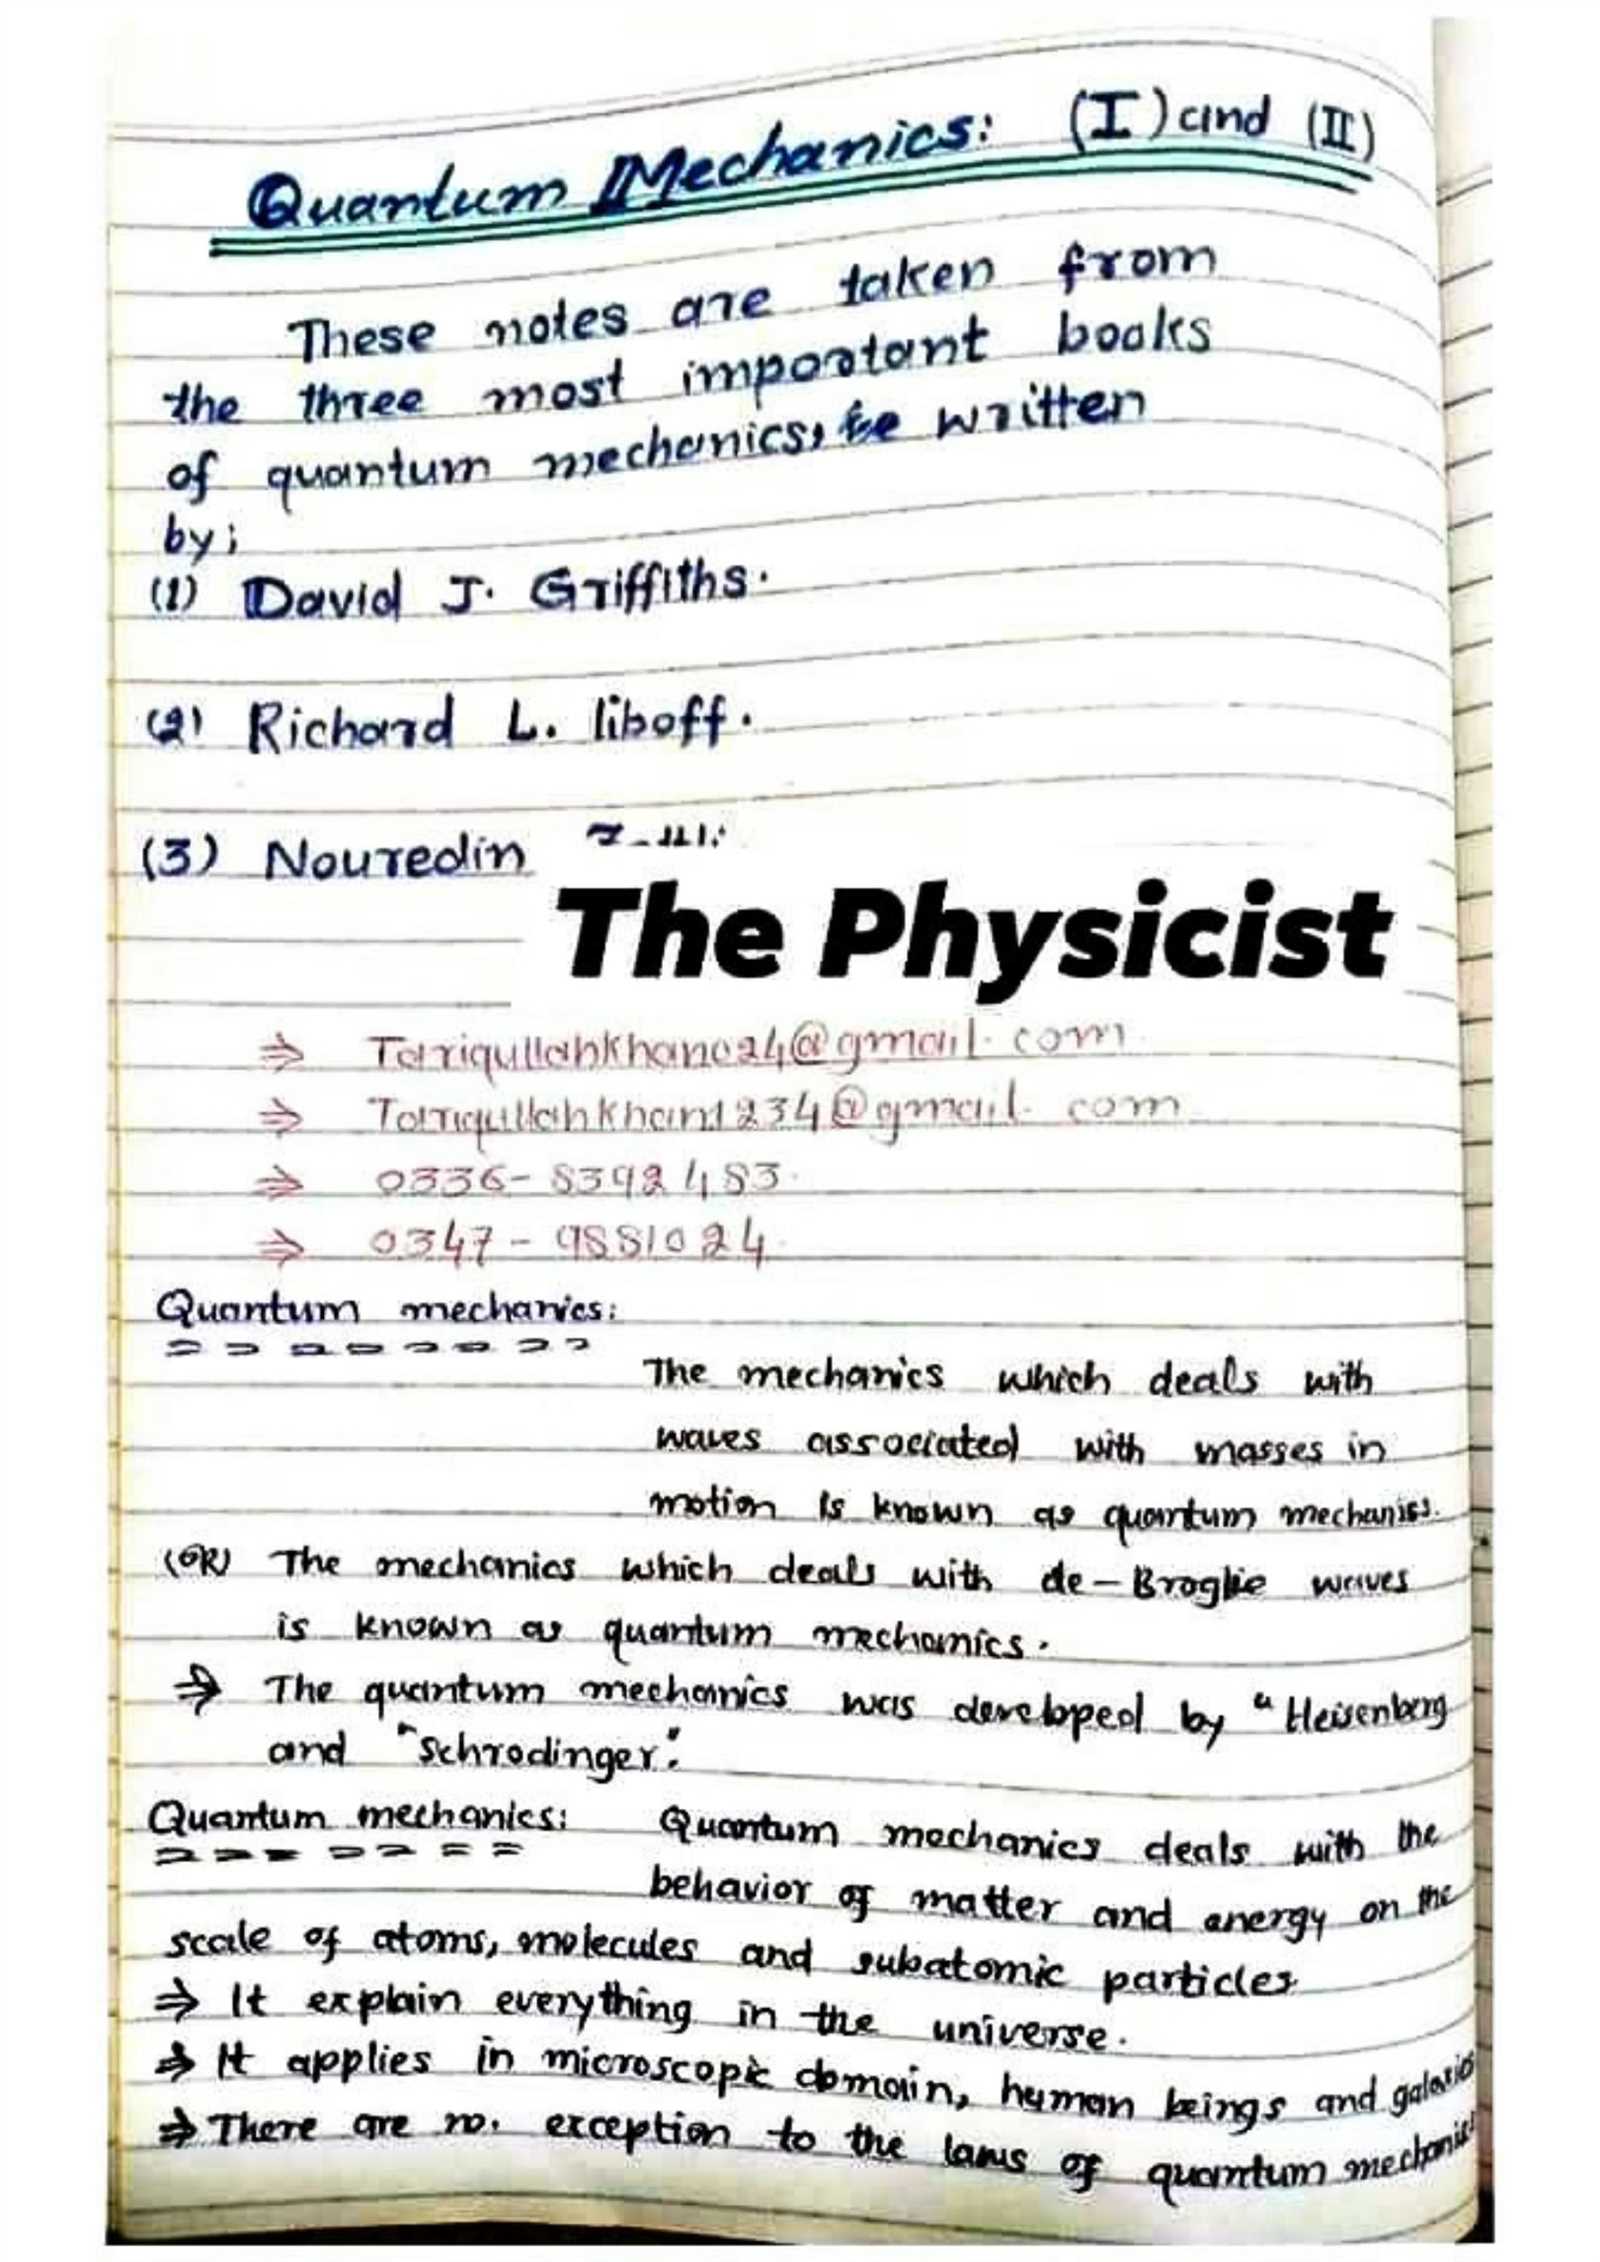 Quantum Mechanics: (I) and (II)
These notes are taken from
the three most important books
of quantum mechanics, written
by;
(1) David J. Griffiths.
(2) Richard L. liboff.
(3) Nouredin
The Physicist
⇒ Tariqullahkhan024@gmail.com
⇒ Tariqullahkhan1234@gmail.com
⇒ 0336-8392483
⇒ 0347-9881024
Quantum mechanics:
The mechanics which deals with
waves associated with masses in
motion is known as quantum mechanics.
(OR) The mechanics which deals with de-Broglie waves
is known as quantum mechanics.
⇒ The quantum mechanics was developed by "Heisenberg
and "Schrodinger".
Quantum mechanics: Quantum mechanics deals with the
behavior of matter and energy on the
scale of atoms, molecules and subatomic particles
⇒ It explain everything in the universe.
⇒ It applies in microscopic domain, human beings and galaxies
⇒ There are no. exception to the laws of quantum mechanics